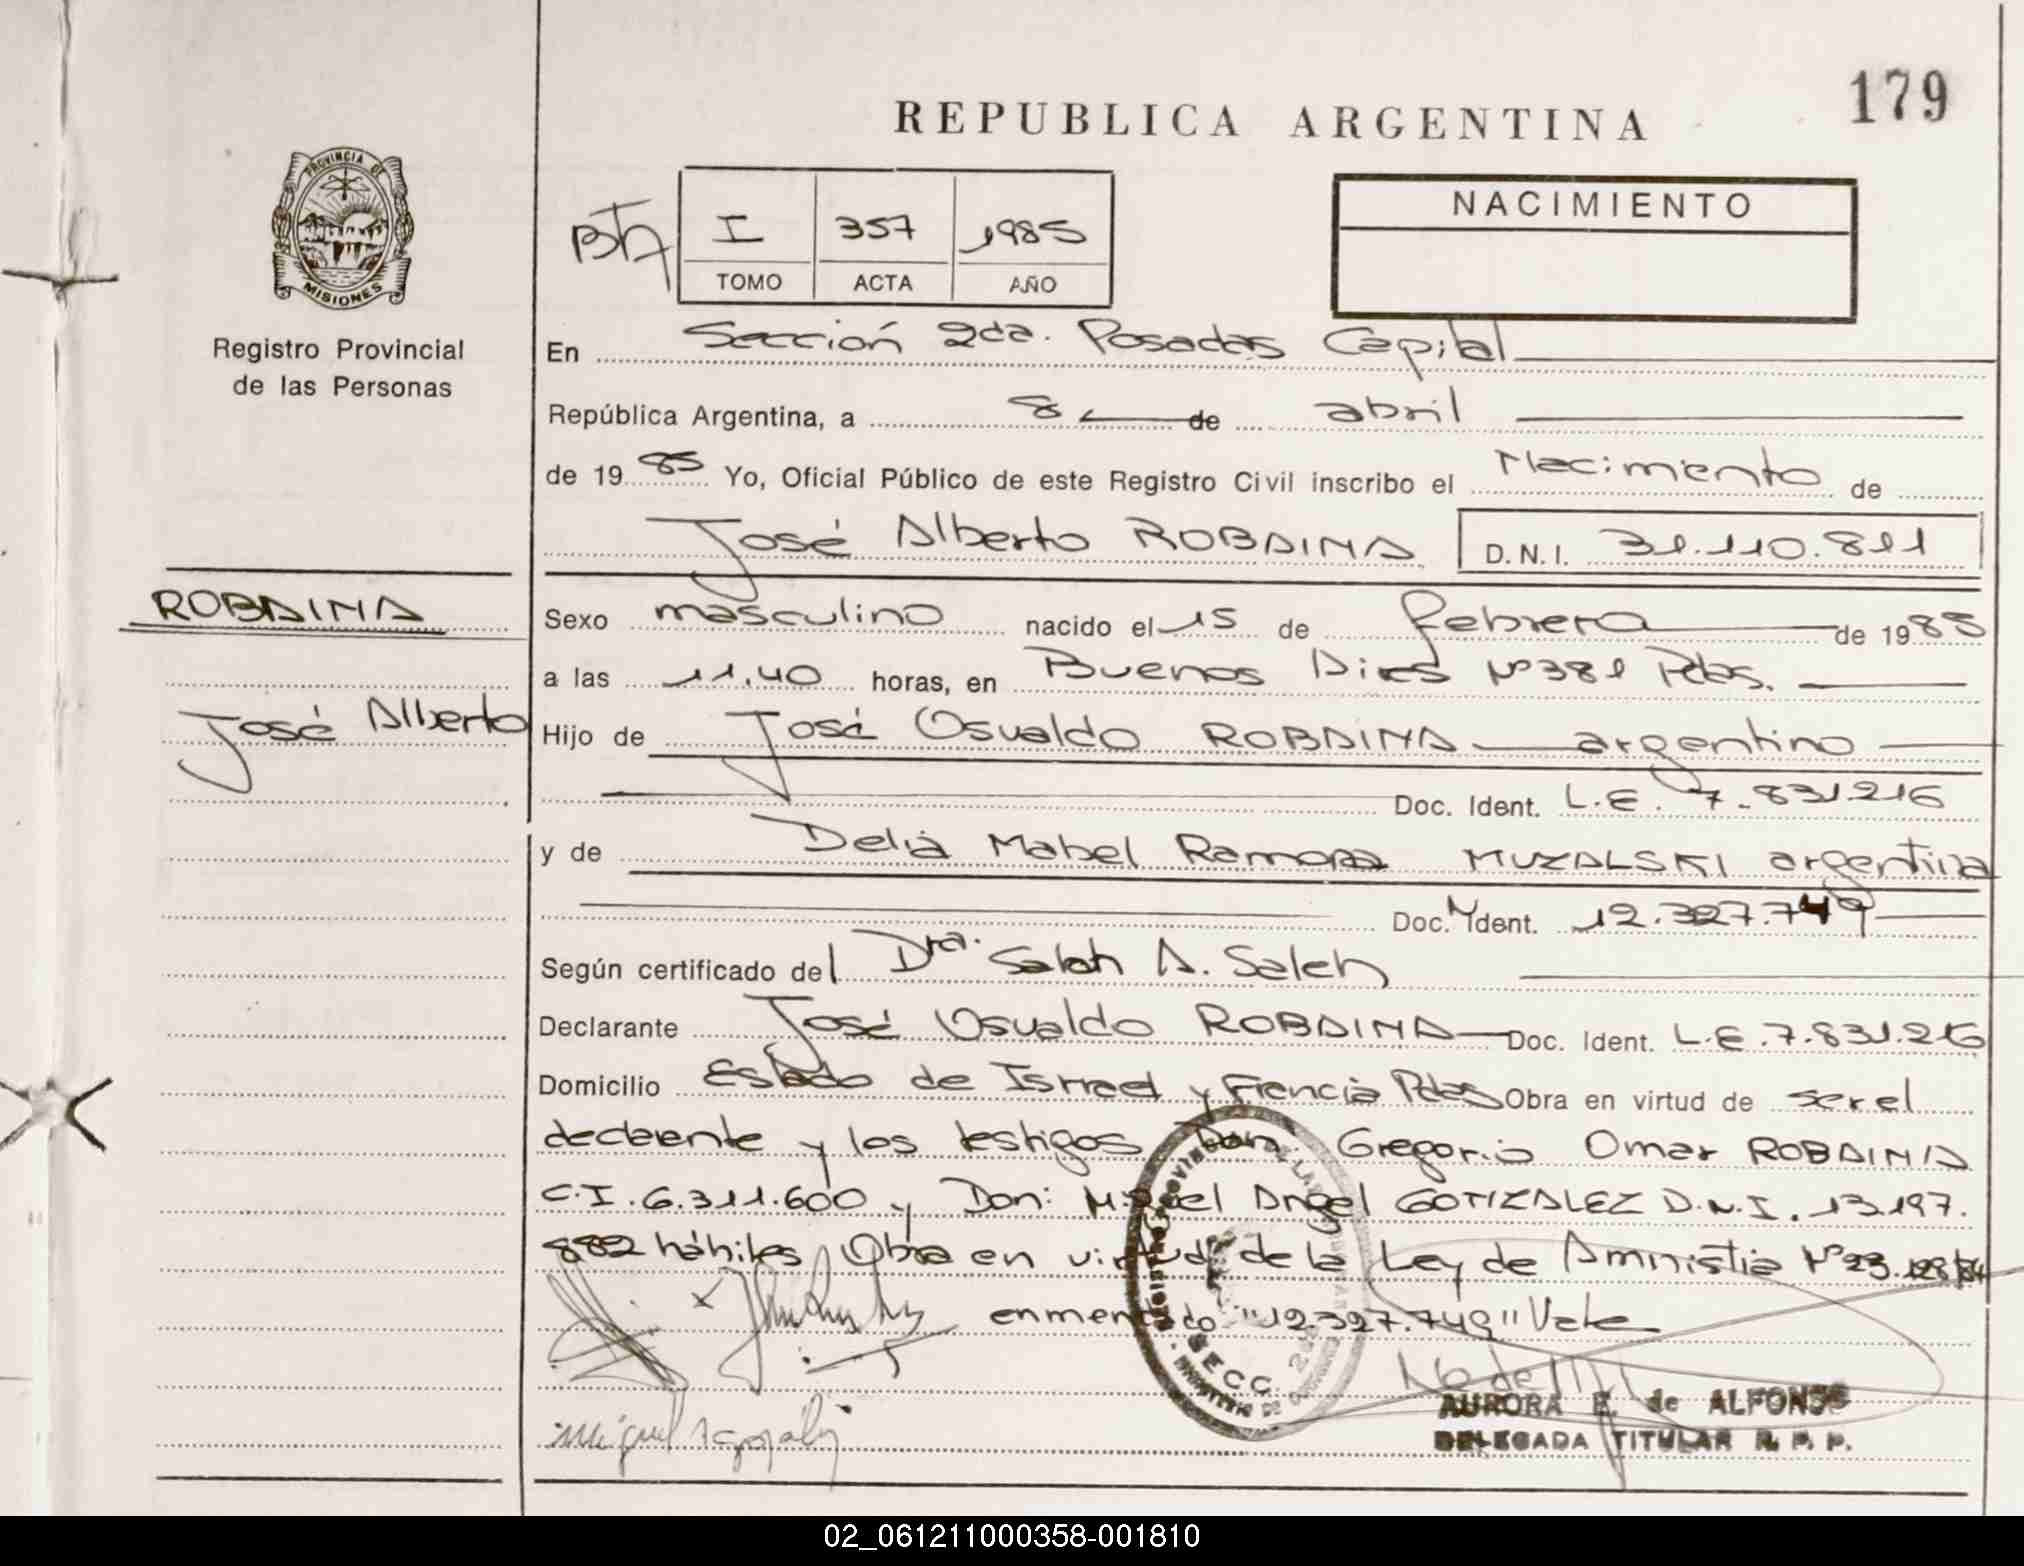 REPUBLICA ARGENTINA
179
PROVINCIA DE
MISIONES
Registro Provincial
de las Personas
I 357 1985
TOMO ACTA AÑO
NACIMIENTO
En Sección 2da. Posadas Capital
República Argentina, a 8 de abril
de 1985 Yo, Oficial Público de este Registro Civil inscribo el Nacimiento de
José Alberto ROBAINA D.N.I. 31.110.811
ROBAINA
José Alberto
Sexo masculino nacido el 15 de febrero de 1985
a las 11.40 horas, en Buenos Aires Nº 381 Pdas.
Hijo de José Osvaldo ROBAINA argentino
Doc. Ident. L.E. 7.831.216
y de Delia Mabel Ramona MUZALSKI argentina
Doc. Ident. 12.327.749
Según certificado del Dra. Salah A. Saleh
Declarante José Osvaldo ROBAINA Doc. Ident. L.E. 7.831.216
Domicilio Estado de Israel y Pdas Obra en virtud de ser el
declarente y los testigos Don: Gregorio Omar ROBAINA
C.I. 6.311.600 y Don: Miguel Angel GONZALEZ D.N.I. 13.197.
882 hábiles Obra en virtud de la Ley de Amnistia Nº 23.128/84
enmendado "12.327.749" Vale
SECC. 2da
AURORA E. de ALFONSO
DELEGADA TITULAR R. P. P.
02_061211000358-001810